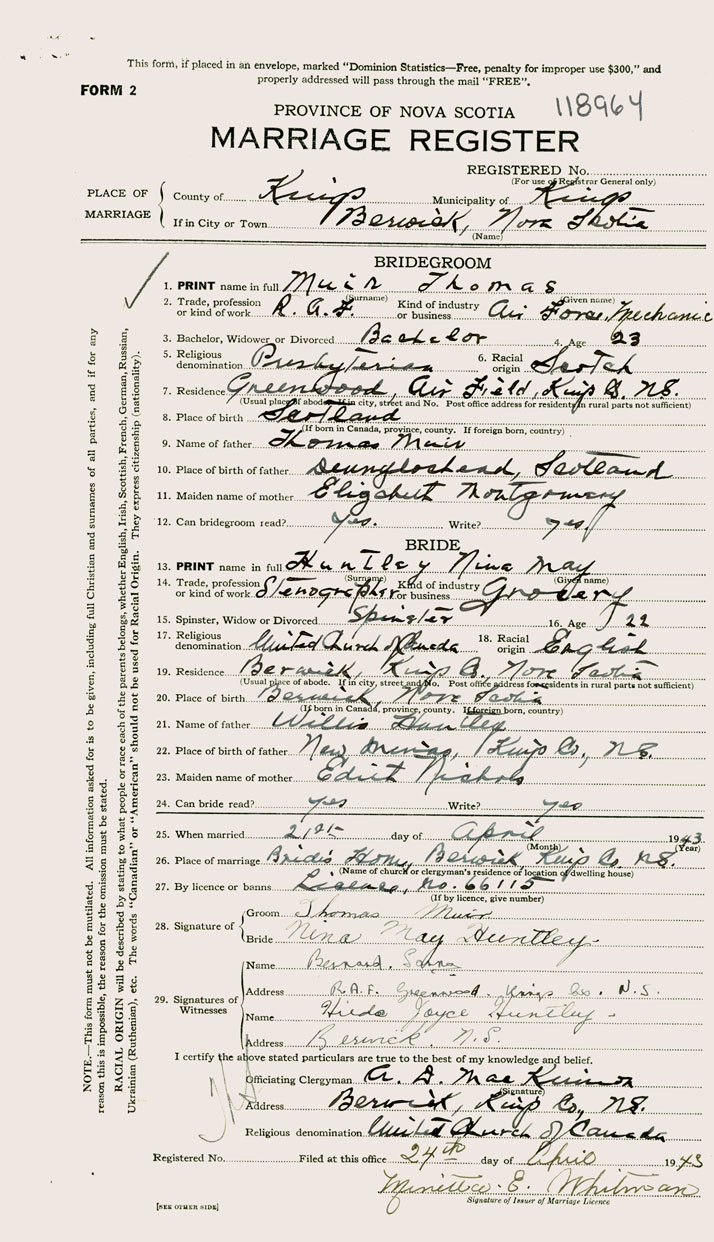 This form, if placed in an envelope, marked "Dominion Statistics—Free, penalty for improper use $300," and
properly addressed will pass through the mail "FREE".
FORM 2
118964
PROVINCE OF NOVA SCOTIA
MARRIAGE REGISTER
REGISTERED No.
(For use of Registrar General only)
PLACE OF MARRIAGE
County of Kings Municipality of Kings
If in City or Town Berwick, Nova Scotia
(Name)
BRIDEGROOM
1. PRINT name in full Muir Thomas
(Surname) (Given name)
2. Trade, profession or kind of work R.A.F. Kind of industry or business Air Force, Mechanic
3. Bachelor, Widower or Divorced Bachelor 4. Age 23
5. Religious denomination Presbyterian 6. Racial origin Scotch
7. Residence Greenwood, Air Field, Kings Co. N.S.
(Usual place of abode. If in city, street and No. Post office address for residents in rural parts not sufficient)
8. Place of birth Scotland
(If born in Canada, province, county. If foreign born, country)
9. Name of father Thomas Muir
10. Place of birth of father Dennyloshead, Scotland
11. Maiden name of mother Elizabeth Montgomery
12. Can bridegroom read? Yes. Write? yes
BRIDE
13. PRINT name in full Huntley Nina May
(Surname) (Given name)
14. Trade, profession or kind of work Stenographer Kind of industry or business Grocery
15. Spinster, Widow or Divorced Spinster 16. Age 22
17. Religious denomination United Church of Canada 18. Racial origin English
19. Residence Berwick, Kings Co., Nova Scotia
(Usual place of abode. If in city, street and No. Post office address for residents in rural parts not sufficient)
20. Place of birth Berwick, Nova Scotia
(If born in Canada, province, county. If foreign born, country)
21. Name of father Willis Huntley
22. Place of birth of father New Minas, Kings Co., N.S.
23. Maiden name of mother Edith Nichols
24. Can bride read? yes Write? yes
25. When married 21st day of April 1943
(Month) (Year)
26. Place of marriage Bride's Home, Berwick, Kings Co. N.S.
(Name of church or clergyman's residence or location of dwelling house)
27. By licence or banns License, no. 66115
(If by licence, give number)
28. Signature of
Groom Thomas Muir
Bride Nina May Huntley
29. Signatures of Witnesses
Name Bernard
Address R.A.F. Greenwood. Kings Co. N.S.
Name Hilda Joyce Huntley
Address Berwick. N.S.
I certify the above stated particulars are true to the best of my knowledge and belief.
Officiating Clergyman A. D. MacKinnon
(Signature)
Address Berwick, Kings Co., N.S.
Religious denomination United Church of Canada
Registered No. Filed at this office 24th day of April 1943
Minetta E. Whitman
Signature of Issuer of Marriage Licence
[SEE OTHER SIDE]
NOTE.—This form must not be mutilated. All information asked for is to be given, including full Christian and surnames of all parties, and if for any
reason this is impossible, the reason for the omission must be stated.
RACIAL ORIGIN will be described by stating to what people or race each of the parents belongs, whether English, Irish, Scottish, French, German, Russian,
Ukrainian (Ruthenian), etc. The words "Canadian" or "American" should not be used for Racial Origin. They express citizenship (nationality).